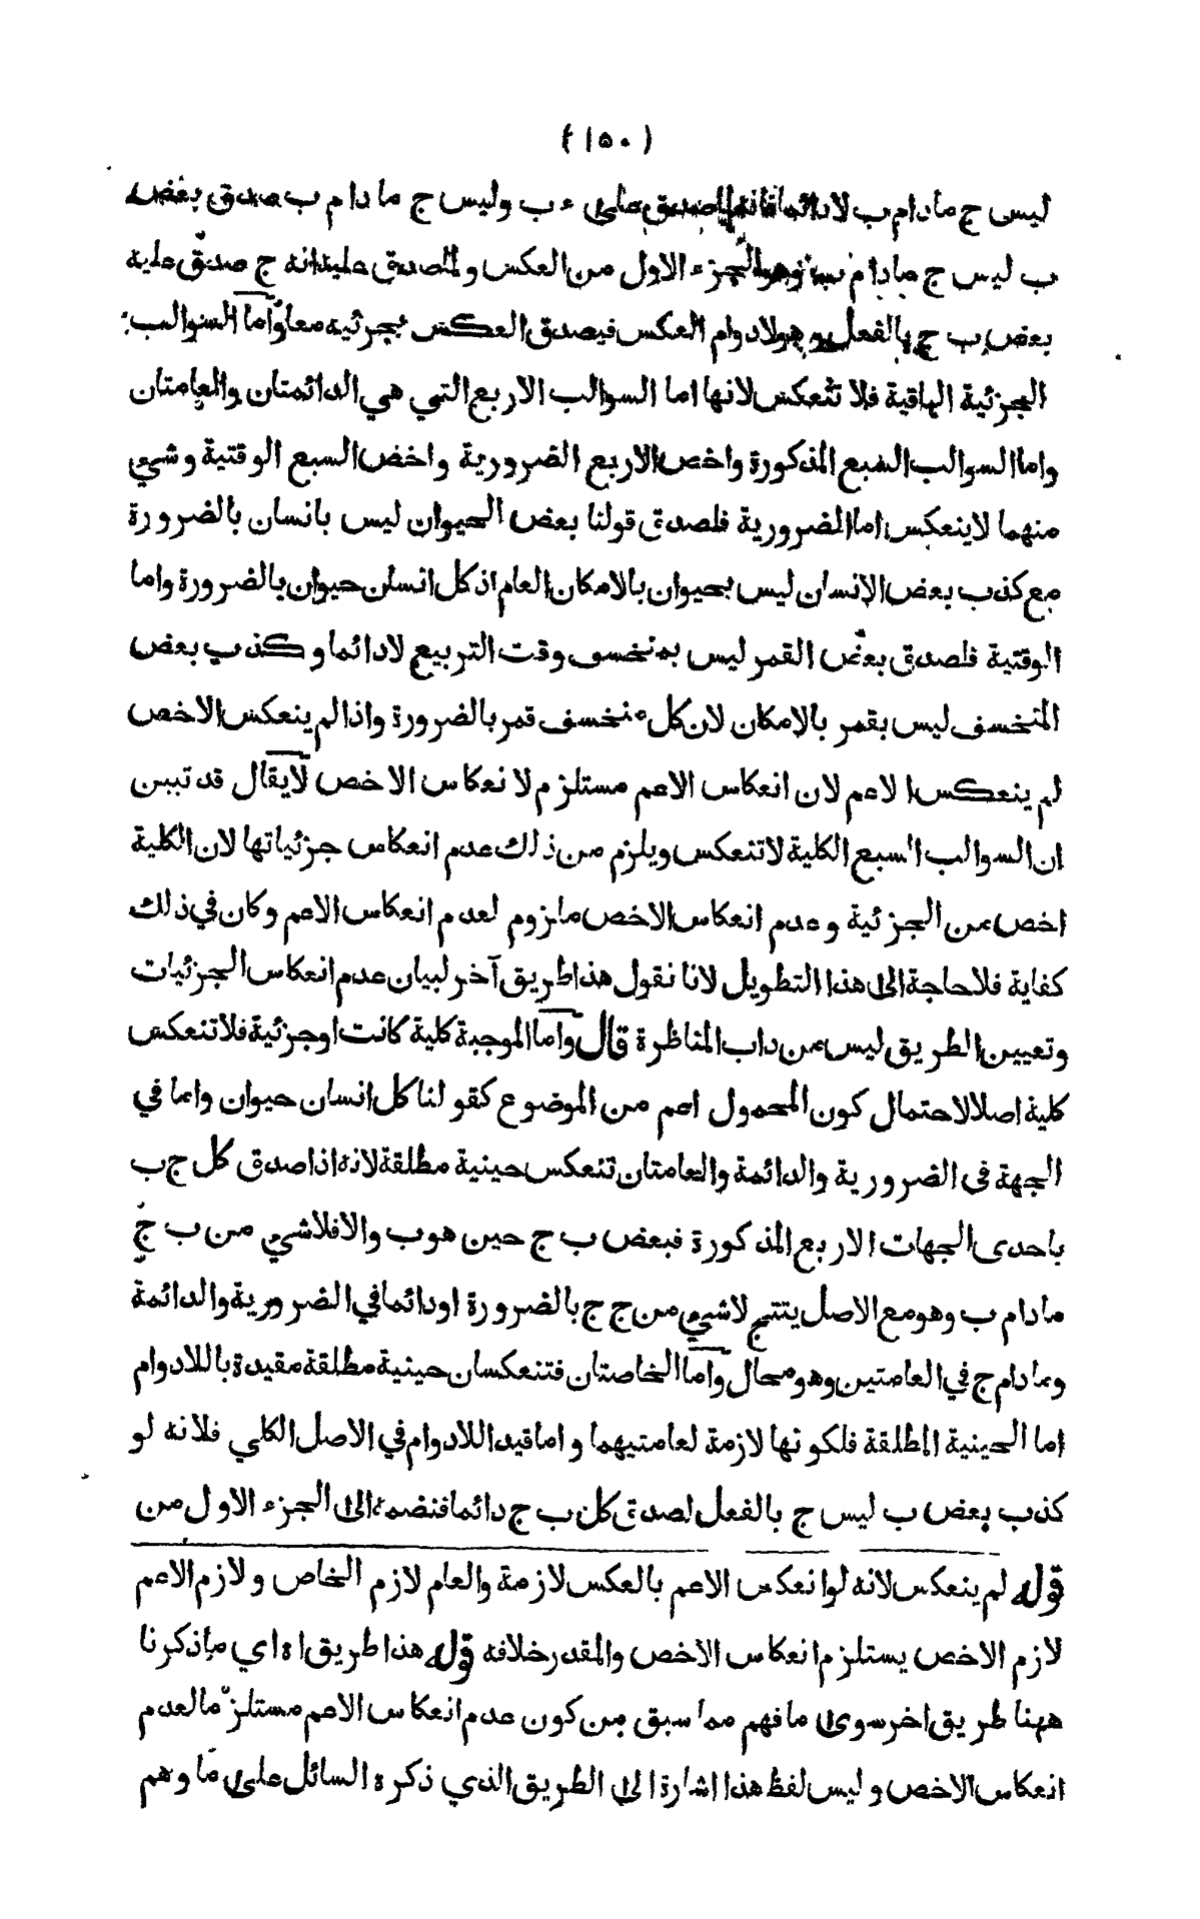 (١٥٠)
ليس ج مادام ب لادائما فانه لما صدق على ء ب وليس ج ما دا م ب صدق بعض
ب ليس ج مادا م ب وهو الجزء الاول من العكس ولما صدق عليه انه ج صدق عليه
بعض ب ج بالفعل وهو لادوام العكس فيصدق العكس بجزئيه معا واما السوالب
الجزئية الباقية فلا تنعكس لانها اما السوالب الاربع التي هي الدائمتان والعامتان
واما السوالب السبع المذكورة واخص الاربع الضرورية واخص السبع الوقتية وشي
منهما لاينعكس اما الضرورية فلصدق قولنا بعض الحيوان ليس بانسان بالضرورة
مع كذب بعض الانسان ليس بحيوان بالامكان العام اذ كل انسان حيوان بالضرورة واما
الوقتية فلصدق بعض القمر ليس بمنخسف وقت التربيع لادائما وكذب بعض
المنخسف ليس بقمر بالامكان لان كل منخسف قمر بالضرورة واذا لم ينعكس الاخص
لم ينعكس الاعم لان انعكاس الاعم مستلزم لانعكاس الاخص لايقال قد تبين
ان السوالب السبع الكلية لاتنعكس ويلزم من ذلك عدم انعكاس جزئياتها لان الكلية
اخص من الجزئية وعدم انعكاس الاخص ملزوم لعدم انعكاس الاعم وكان في ذلك
كفاية فلاحاجة الى هذا التطويل لانا نقول هذا طريق آخر لبيان عدم انعكاس الجزئيات
وتعيين الطريق ليس من داب المناظرة قال واما الموجبة كلية كانت اوجزئية فلاتنعكس
كلية اصلا لاحتمال كون المحمول اعم من الموضوع كقولنا كل انسان حيوان واما في
الجهة فى الضرورية والدائمة والعامتان تنعكس حينية مطلقة لانه اذا صدق كل ج ب
باحدى الجهات الاربع المذكورة فبعض ب ج حين هو ب والا فلاشي من ب ج
مادام ب وهو مع الاصل ينتج لاشي من ج ج بالضرورة اودائما في الضرورية والدائمة
وما دام ج في العامتين وهو محال واما الخاصتان فتنعكسان حينية مطلقة مقيدة باللادوام
اما الحينية المطلقة فلكونها لازمة لعامتيهما واما قيد اللادوام في الاصل الكلي فلانه لو
كذب بعض ب ليس ج بالفعل لصدق كل ب ج دائما فنضمه الى الجزء الاول من
قوله لم ينعكس لانه لوانعكس الاعم بالعكس لازمة والعام لازم الخاص ولازم الاعم
لازم الاخص يستلزم انعكاس الاخص والمقدر خلافه قوله هذا طريق اه اي ماذكرنا
ههنا طريق اخر سوى مافهم مما سبق من كون عدم انعكاس الاعم مستلزما لعدم
انعكاس الاخص وليس لفظ هذا اشارة الى الطريق الذي ذكره السائل على ما وهم